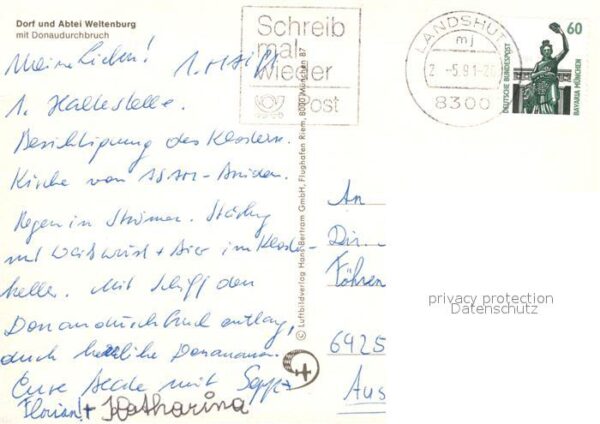 Dorf und Abtei Weltenburg
mit Donaudurchbruch
Meine Lieben! 1. Mai 91
1. Haltestelle.
Besichtigung des Klosters.
Kirche von Asam-Brüder.
Regen in Strömen. Stärkung
mit Weißwurst + Bier im Kloster-
keller. Mit Schiff den
Donaudurchbruch entlang,
durch herrliche Donauauen.
Eure mit Sepp +
Florian! + Katharina
© Luftbildverlag Hans Bertram GmbH, Flughafen Riem, 8000 München 87
Schreib
mal
wieder
Post
LANDSHUT
mj
2.-5.91-2
8300
60
DEUTSCHE BUNDESPOST
BAVARIA MÜNCHEN
An
Dir.
Föhren
6425
Aus
privacy protection
Datenschutz